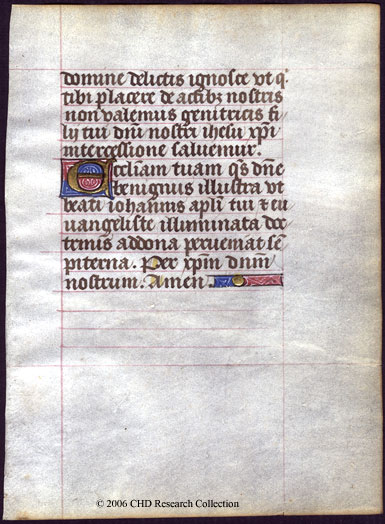 domine delictis ignosce vt q̇
tibi placere de actibꝫ nostris
non valemus genitricis fi
lij tui dn̄i nostri ihesu xp̄i
intercessione saluemur.
Eccl̄iam tuam q̄s dn̄e
benignus illustra vt
beati iohannis apl̄i tui ⁊ eu
uangeliste illuminata doc
trinis ad dona perueniat sē
piterna. Per xp̄m dn̄m
nostrum. Amen
© 2006 CHD Research Collection